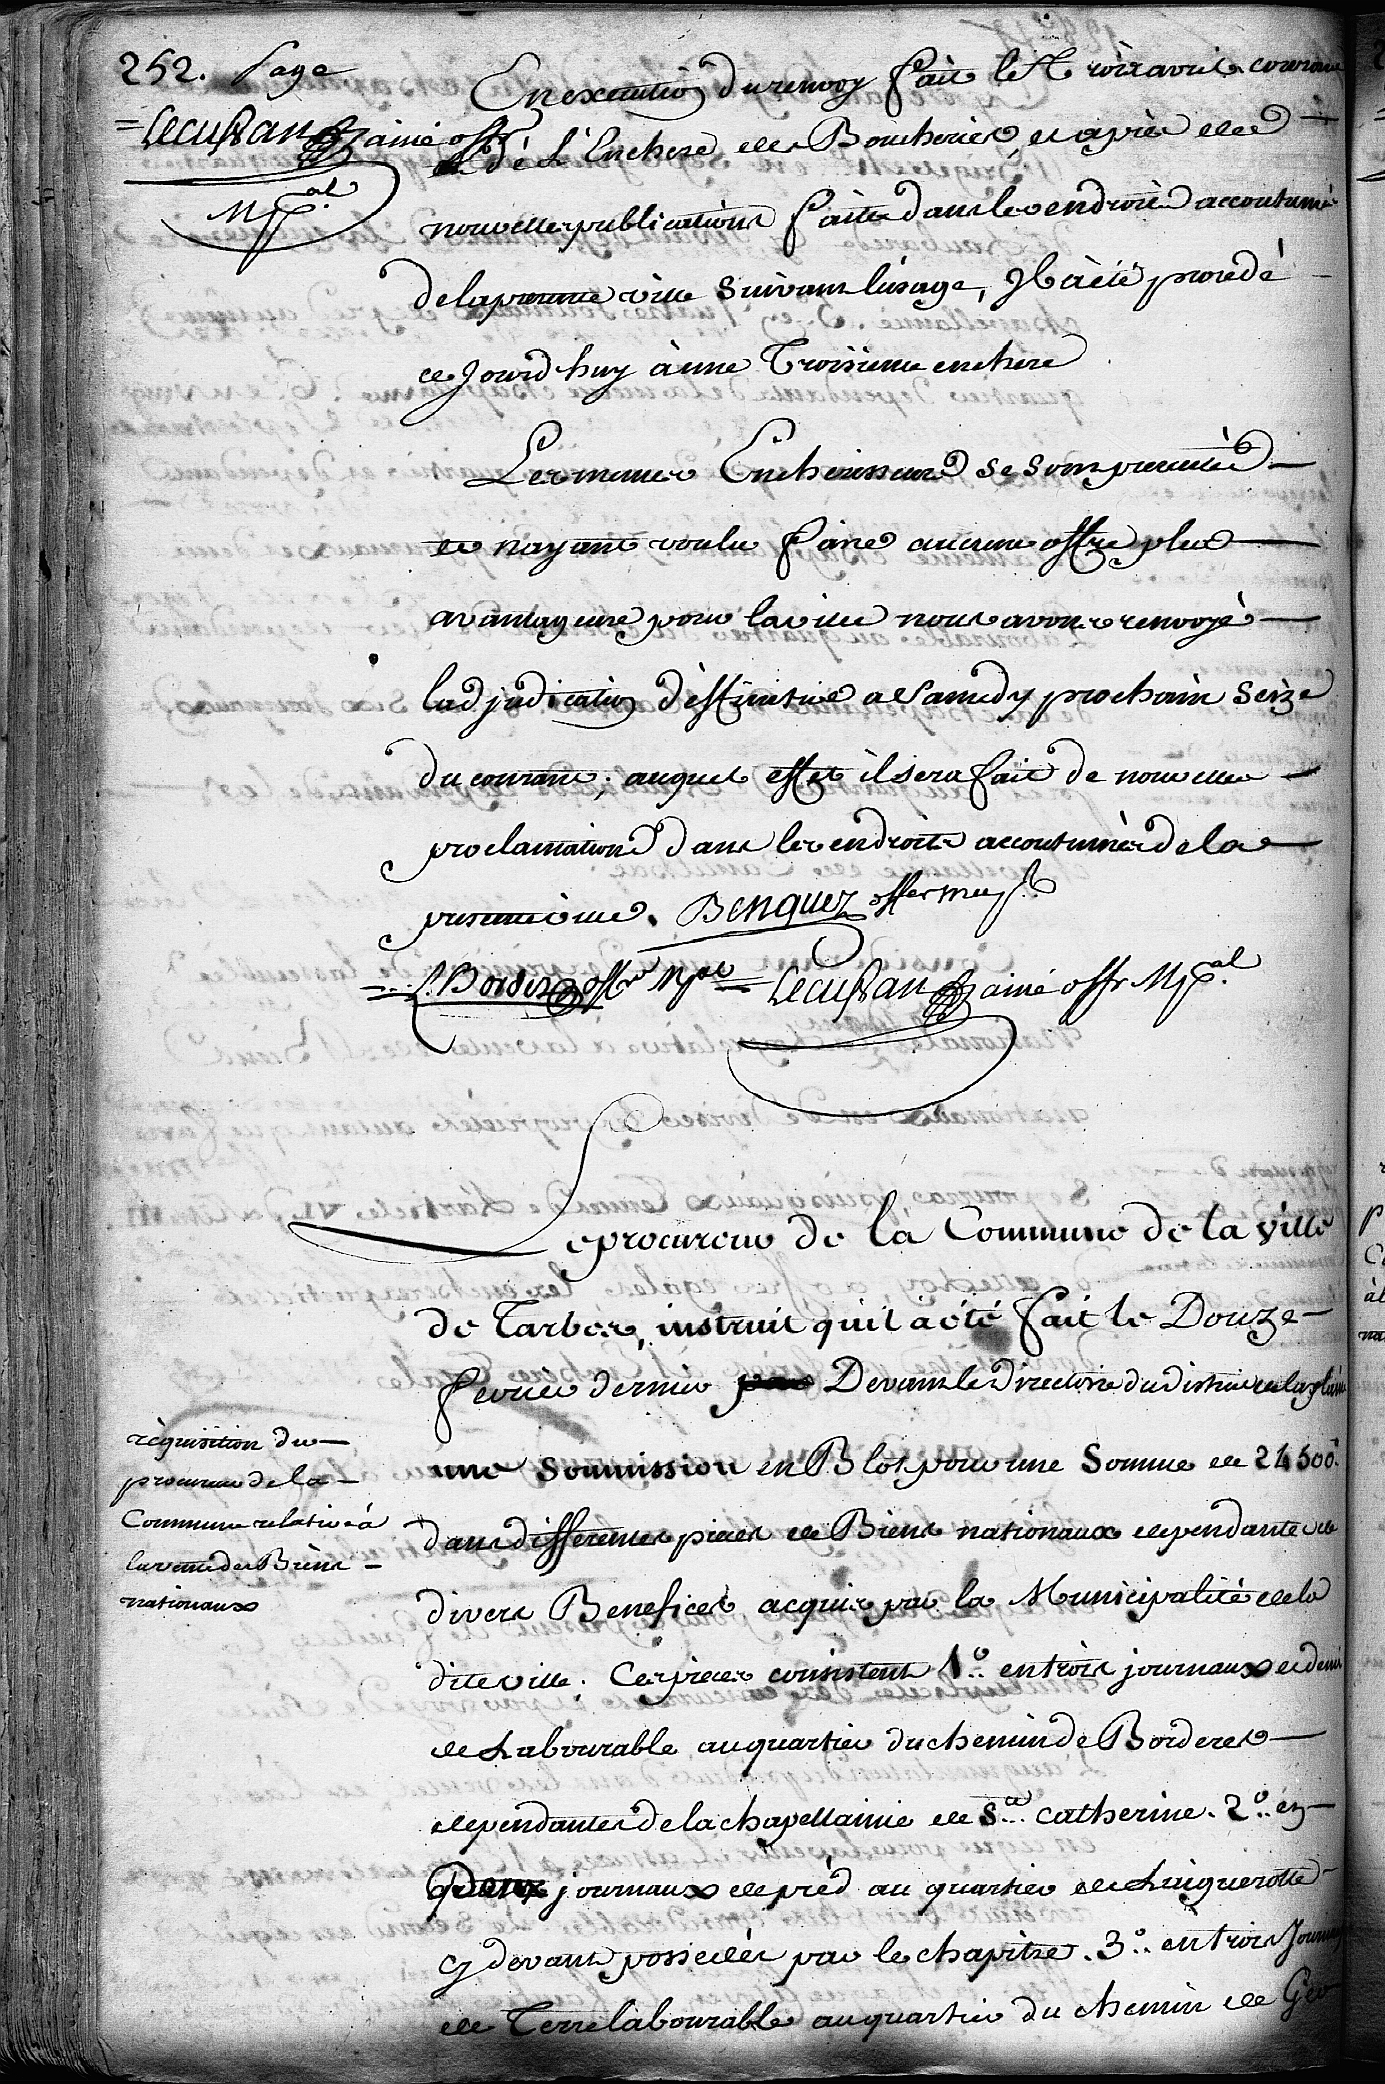 252. Page
Lecussan ainé off.
Mpal.
En execution du renvoy fait le trois avril courant
de L'Enchere des Boucheries, et après des
nouvelles publications faites dans les endroits accoutumés
de la presente ville suivant lusage, Il a été procedé
ce Jourd'huy à une Troisieme enchere
Les memes Encherisseurs se sont presentés
et nayant voulu faire aucune offre plus
avantageuse pour la ville nous avons renvoyé
ladjudication déffinitive a Samedy prochain Seize
du courant; auquel effet il sera fait de nouvelles
proclamations dans les endroits accoutumés de la
presente ville. Benquez offer muy.
Bordes offr Mpal Lecussan ainé offr Mpal.
Le procureur de la Commune de la ville
de Tarbes, instruit qu'il a été fait le Douze
fevrier dernier Devant le Directoire du district de la plaine
réquisition du
procureur de la
Commune relative à
la vente des Biens
nationaux
une Soumission en Bloc pour une Somme de 24500
dans differentes pieces de Biens nationaux dependantes de
divers Benefices acquis par la Municipalité de la
dite ville. Ces pieces consistent 1°. en trois journaux et demi
de Labourable au quartier du chemin de Borderes
dependantes de la chapellainie de Ste. catherine. 2°. en
Deux journaux de préd au quartier de Linguerotte
cy devant possedés par le chapitre. 3°. en trois Journaux
de Terre labourable au quartier du chemin de